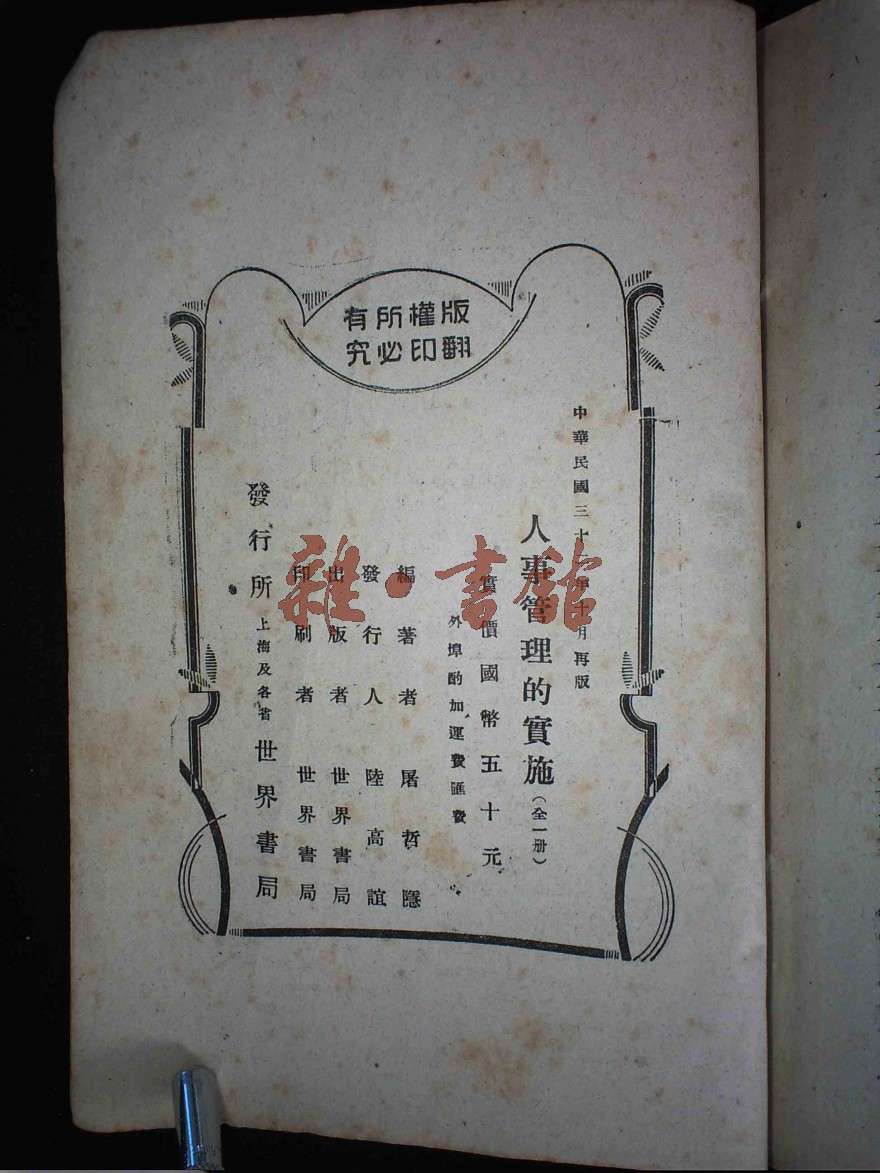 版權所有
翻印必究
中華民國三十年十月再版
人事管理的實施（全一册）
實價國幣五十元
外埠酌加運費匯費
編著者 屠哲隱
發行人 陸高誼
出版者 世界書局
印刷者 世界書局
發行所 上海及各省 世界書局
雜·書館